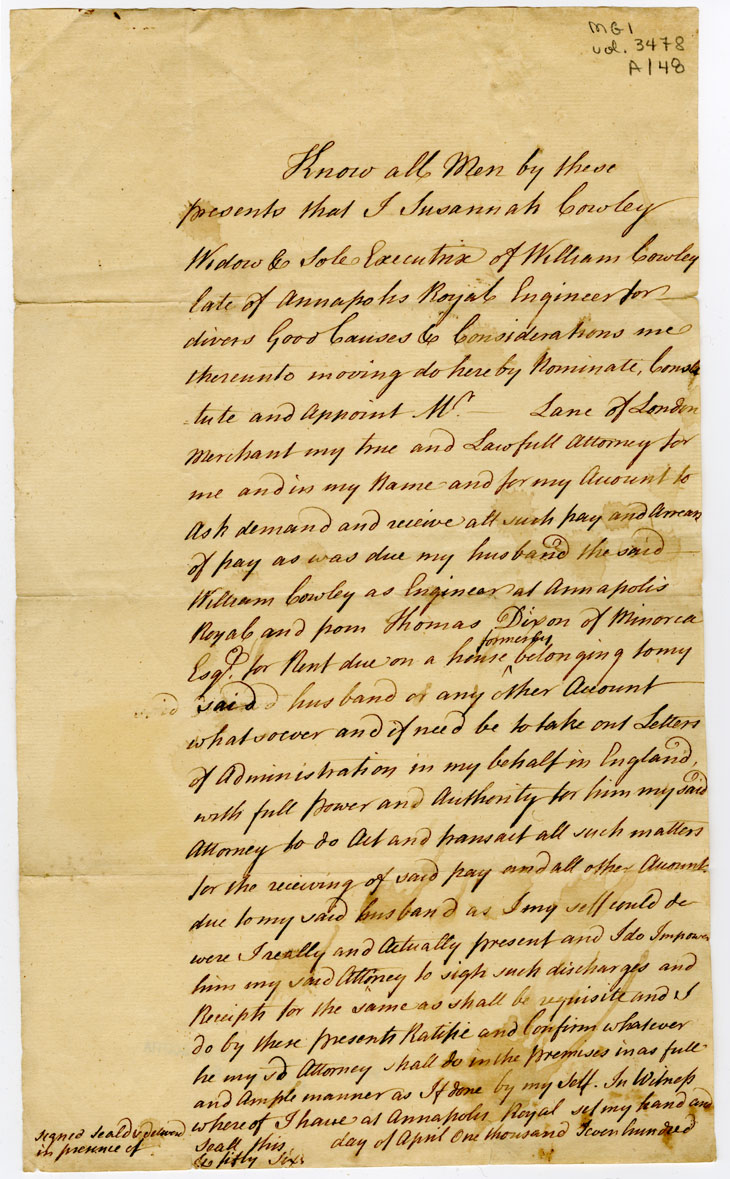 MG1
vol. 3478
A148
Know all Men by these
presents that I Susannah Cowley
Widow & Sole Executrix of William Cowley
late of Annapolis Royal Engineer for
divers Good Causes & Considerations me
thereunto moving do hereby Nominate, Consti
-tute and Appoint Mr. — Lane of London
Merchant my true and Lawfull Attorney for
me and in my Name and for my Account to
Ask demand and receive all such pay and Arrears
of pay as was due my husband the said
William Cowley as Engineer at Annapolis
Royal and from Thomas Dixon of Minorca
formerly
Esqr. for Rent due on a house ^ belonging to my
said husband or any other Account
whatsoever and if need be to take out Letters
of Administration in my behalf in England,
with full power and Authority for him my said
Attorney to do Act and transact all such matters
for the receiving of said pay and all other Accounts
due to my said husband as I my self could do
were I really and Actually present and I do Impower
him my said Attorney to sign such discharges and
Receipts for the same as shall be requisite and I
do by these presents Ratifie and Confirm whatever
he my sd Attorney shall do in the premises in as full
and Ample manner as If done by my Self. In Witness
whereof I have at Annapolis Royal set my hand and
Seall this day of April One thousand Seven hundred
& fifty Six
Signed Seald & delivered
in presence of